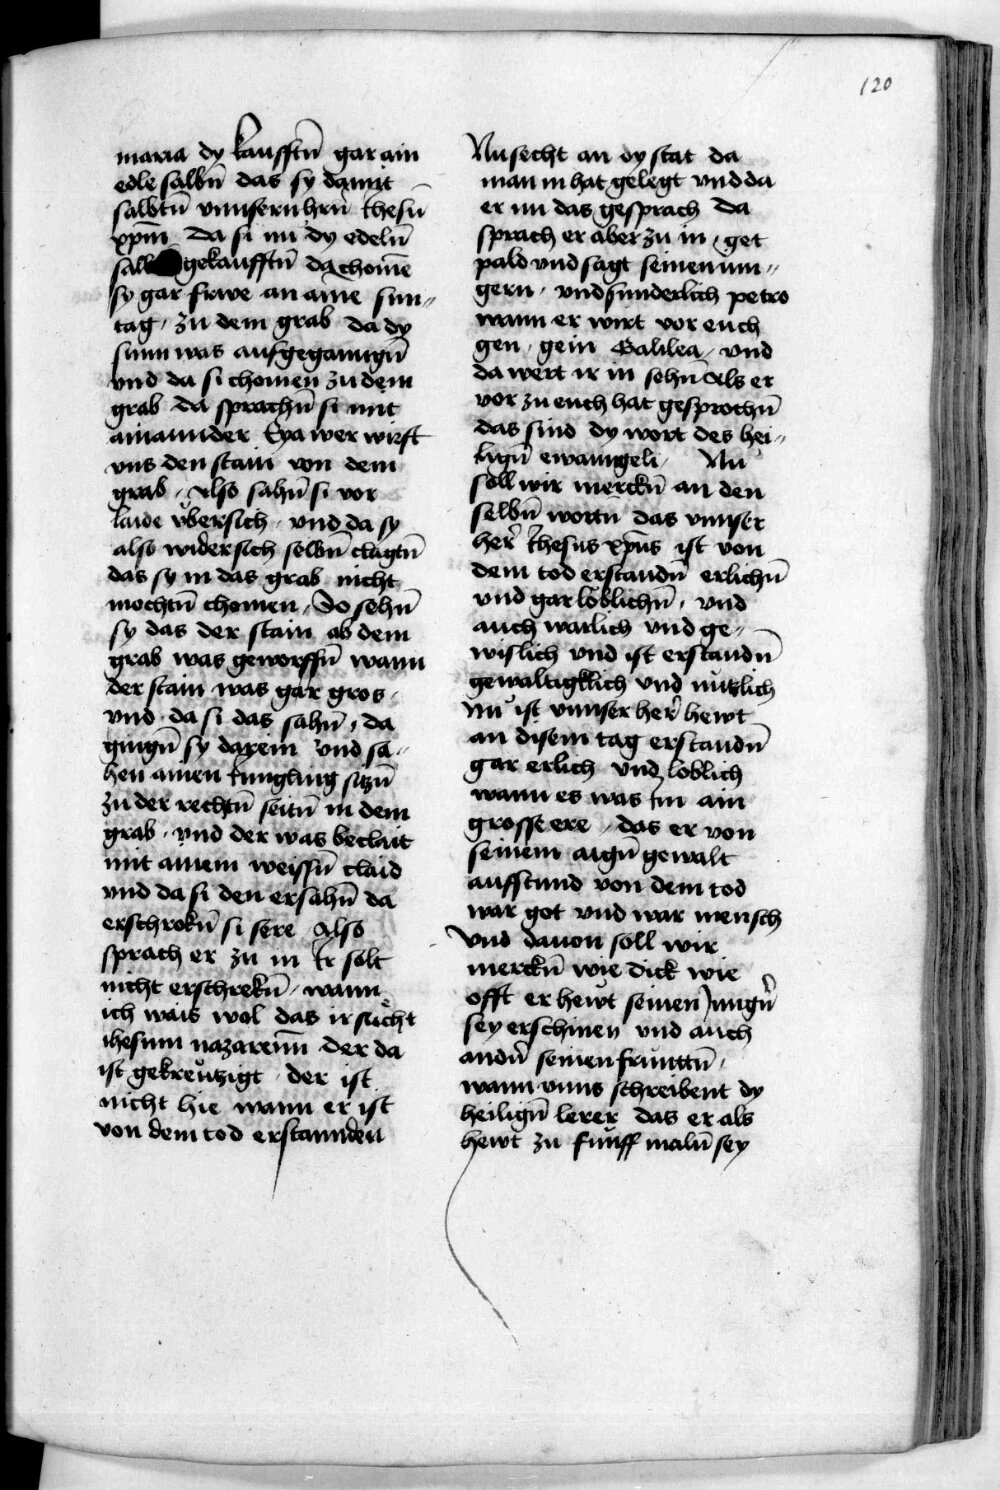 120
maria dy kaufftn̄ gar ain
edle salbn̄ das sy damit
salbtn̄ vnnsern hrn̄ ihesū
xp̄m da si nu dy edeln̄
salb gekaufftn̄ da chomē
sy gar frwe an aine sun„
tag, zu dem grab da dy
sunn was aufgeganngn̄
vnd da si chomen zu dem
grab da sprachn̄ si mit
ainannder Eya wer wirft
vns den stain von dem
grab, Also sahn̄ si vor
laide vbersich, vnd da sy
also widersich selbn̄ clagtn̄
das sy in das grab nicht
mochtn̄ chomen, Do sehn̄
sy das der stain ab dem
grab was geworffn̄ wann
der stain was gar gros,
vnd da si das sahn̄, da
gingn̄ sy darein vnd sa„
hen ainen Iungling sitzn̄
zu der rechtn̄ seitn̄ in dem
grab, vnd der was beclait
mit ainem weissn̄ claid
vnd da si den ersahn̄ da
erschrokn̄ si sere Also
sprach er zu in Ir solt
nicht erschrekn̄, wann
ich wais wol das ir sůcht
ihesum nazarenū der da
ist gekreůtzigt, der ist
nicht hie wann er ist
von dem tod erstannden
Nu secht an dy stat da
man in hat gelegt vnd da
er nu das gesprach Da
sprach er aber zu in, get
pald vnd sagt seinen iun„
gern, vnd sunderlich petro
wann er wirt vor euch
gen, gein Galilea, vnd
da wert ir in sehn̄ Als er
vor zu euch hat gesprochn̄
das sind dy wort des hei„
lign̄ ewanngeli, Nu
soll wir merckn̄ an den
selbn̄ wortn das vnnser
her̄ Ihesus xp̄us ist von
dem tod erstandn̄ erlichn̄
vnd gar loblichn̄, vnd
auch warlich vnd ge„
wislich vnd ist erstandn̄
gewaltigklich vnd nůtzlich
Nu ist vnnser her̄ hewt
an disem tag erstandn̄
gar erlich vnd loblich
wann es was im ain
grosst ere, das er von
seinem aign̄ gewalt
aufstund von dem tod
war got vnd war mensch
Vnd dauon soll wir
merckn̄ wie dick wie
offt er hewt seinen Jungn̄
sey erschinen vnd auch
andn̄ seinen frůnttn̄,
wann vnns schreibent dy
heilign̄ lerer das er als
hewt zu fůnff maln̄ sey